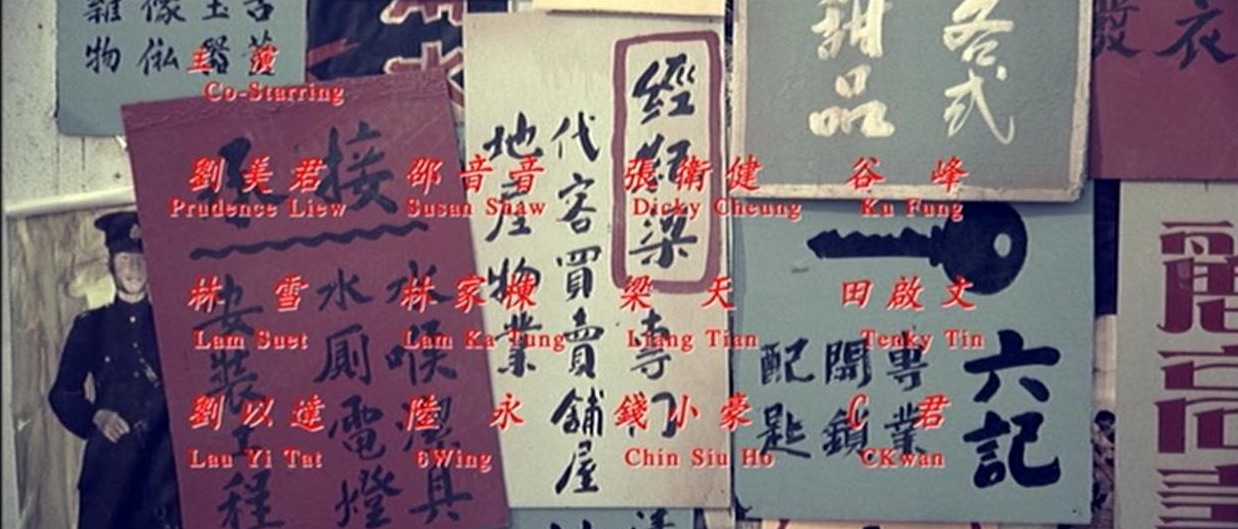 主演
Co-Starring
劉美君 邵音音 張衛健 谷峰
Prudence Liew Susan Shaw Dicky Cheung Ku Fung
林雪 林家棟 梁天 田啟文
Lam Suet Lam Ka Tung Liang Tian Tenky Tin
劉以達 陸永 錢小豪 C君
Lau Yi Tat 6Wing Chin Siu Ho CKwan
玉器
傢俬
雜物
承接
水喉潔具
水廁電燈
安裝工程
經紀梁
代客買賣舖屋
地産物業
各式
甜品
六記
專業
開鎖
配匙
衣